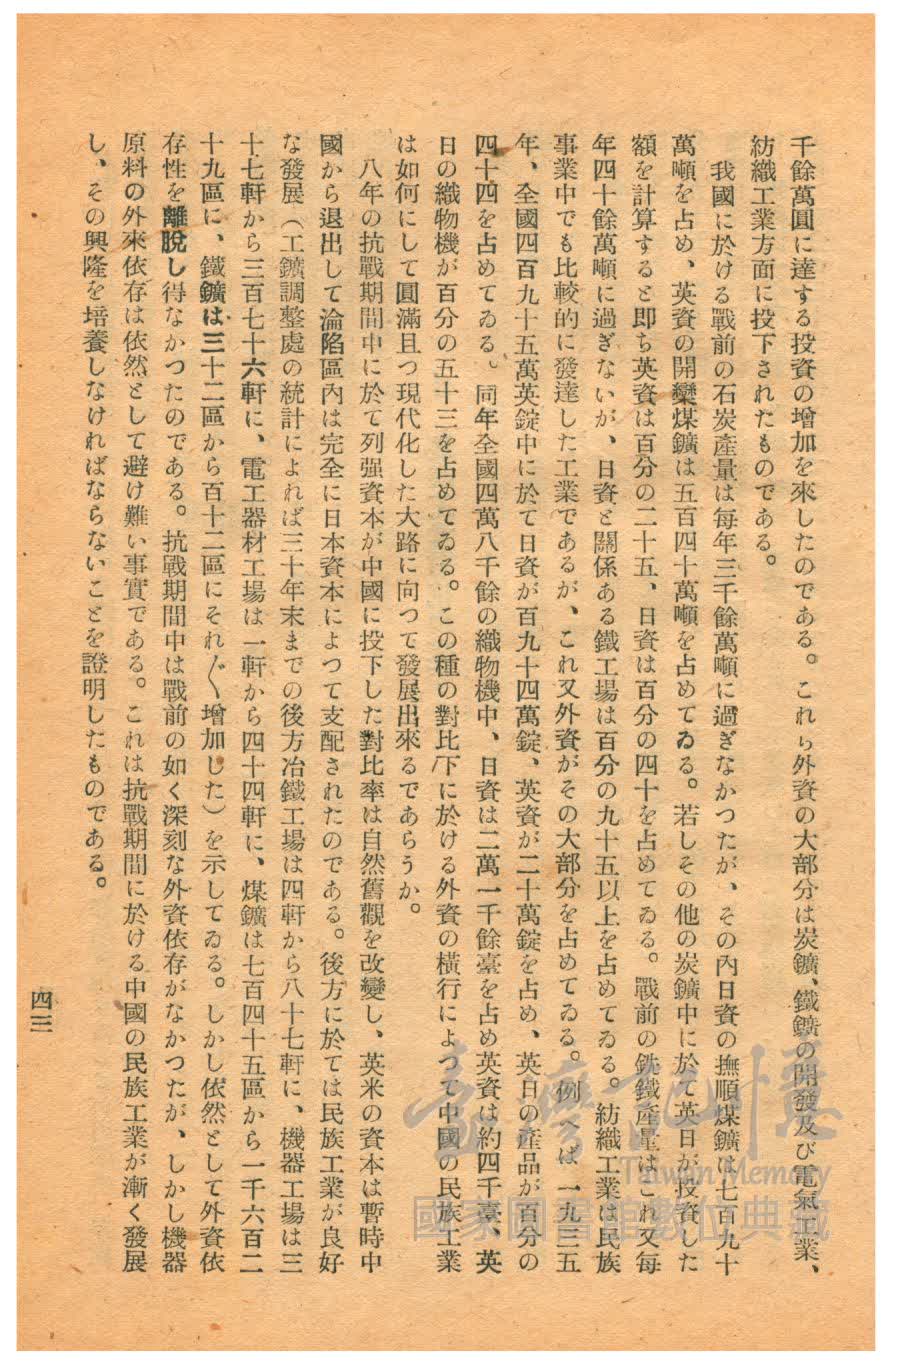 千餘萬圓に達する投資の增加を來したのである。これら外資の大部分は炭鑛、鐵鑛の開發及び電氣工業、
紡織工業方面に投下されたものである。
我國に於ける戰前の石炭產量は每年三千餘萬噸に過ぎなかつたが、その內日資の撫順煤鑛は七百九十
萬噸を占め、英資の開欒煤鑛は五百四十萬噸を占めてゐる。若しその他の炭鑛中に於て英日が投資した
額を計算すると卽ち英資は百分の二十五、日資は百分の四十を占めてゐる。戰前の銑鐵產量はこれ又每
年四十餘萬噸に過ぎないが、日資と關係ある鐵工場は百分の九十五以上を占めてゐる。紡織工業は民族
事業中でも比較的に發達した工業であるが、これ又外資がその大部分を占めてゐる。例へば一九三五
年、全國四百九十五萬英錠中に於て日資が百九十四萬錠、英資が二十萬錠を占め、英日の產品が百分の
四十四を占めてゐる。同年全國四萬八千餘の織物機中、日資は二萬一千餘臺を占め英資は約四千臺、英
日の織物機が百分の五十三を占めてゐる。この種の對比下に於ける外資の橫行によつて中國の民族工業
は如何にして圓滿且つ現代化した大路に向つて發展出來るであらうか。
八年の抗戰期間中に於て列强資本が中國に投下した對比率は自然舊觀を改變し、英米の資本は暫時中
國から退出して淪陷區內は完全に日本資本によつて支配されたのである。後方に於ては民族工業が良好
な發展（工鑛調整處の統計によれば三十年末までの後方冶鐵工場は四軒から八十七軒に、機器工場は三
十七軒から三百七十六軒に、電工器材工場は一軒から四十四軒に、煤鑛は七百四十五區から一千六百二
十九區に、鐵鑛は三十二區から百十二區にそれ〳〵增加した）を示してゐる。しかし依然として外資依
存性を離脫し得なかつたのである。抗戰期間中は戰前の如く深刻な外資依存がなかつたが、しかし機器
原料の外來依存は依然として避け難い事實である。これは抗戰期間に於ける中國の民族工業が漸く發展
し、その興隆を培養しなければならないことを證明したものである。
四三
臺灣記憶
Taiwan Memory
國家圖書館數位典藏